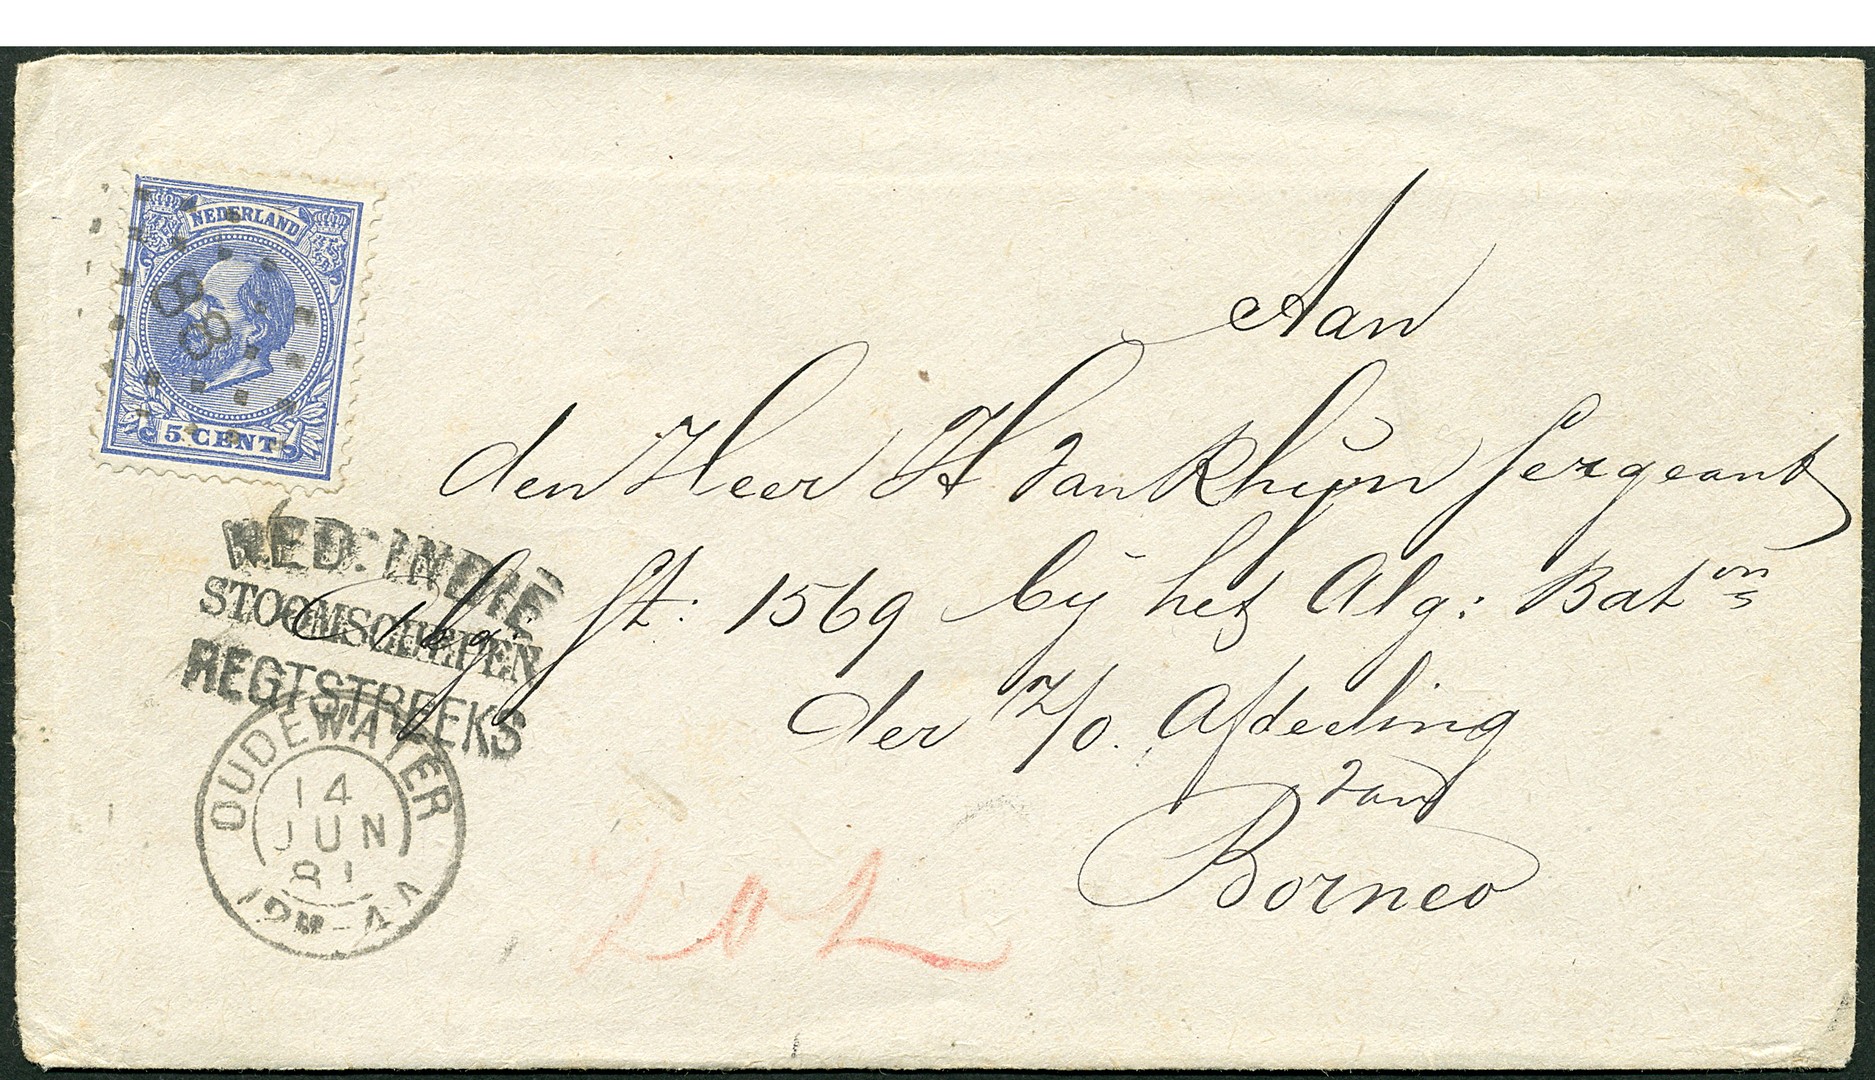 NEDERLAND
88
5 CENT
NED: INDIE
STOOMSCHEPEN
REGTSTREEKS
OUDEWATER
14
JUN
81
Aan
den Heer H van Rhijn Sergeant
Alg. St: 1569 bij het Alg: Bat on s
der Z/O. Afdeeling
van
Borneo